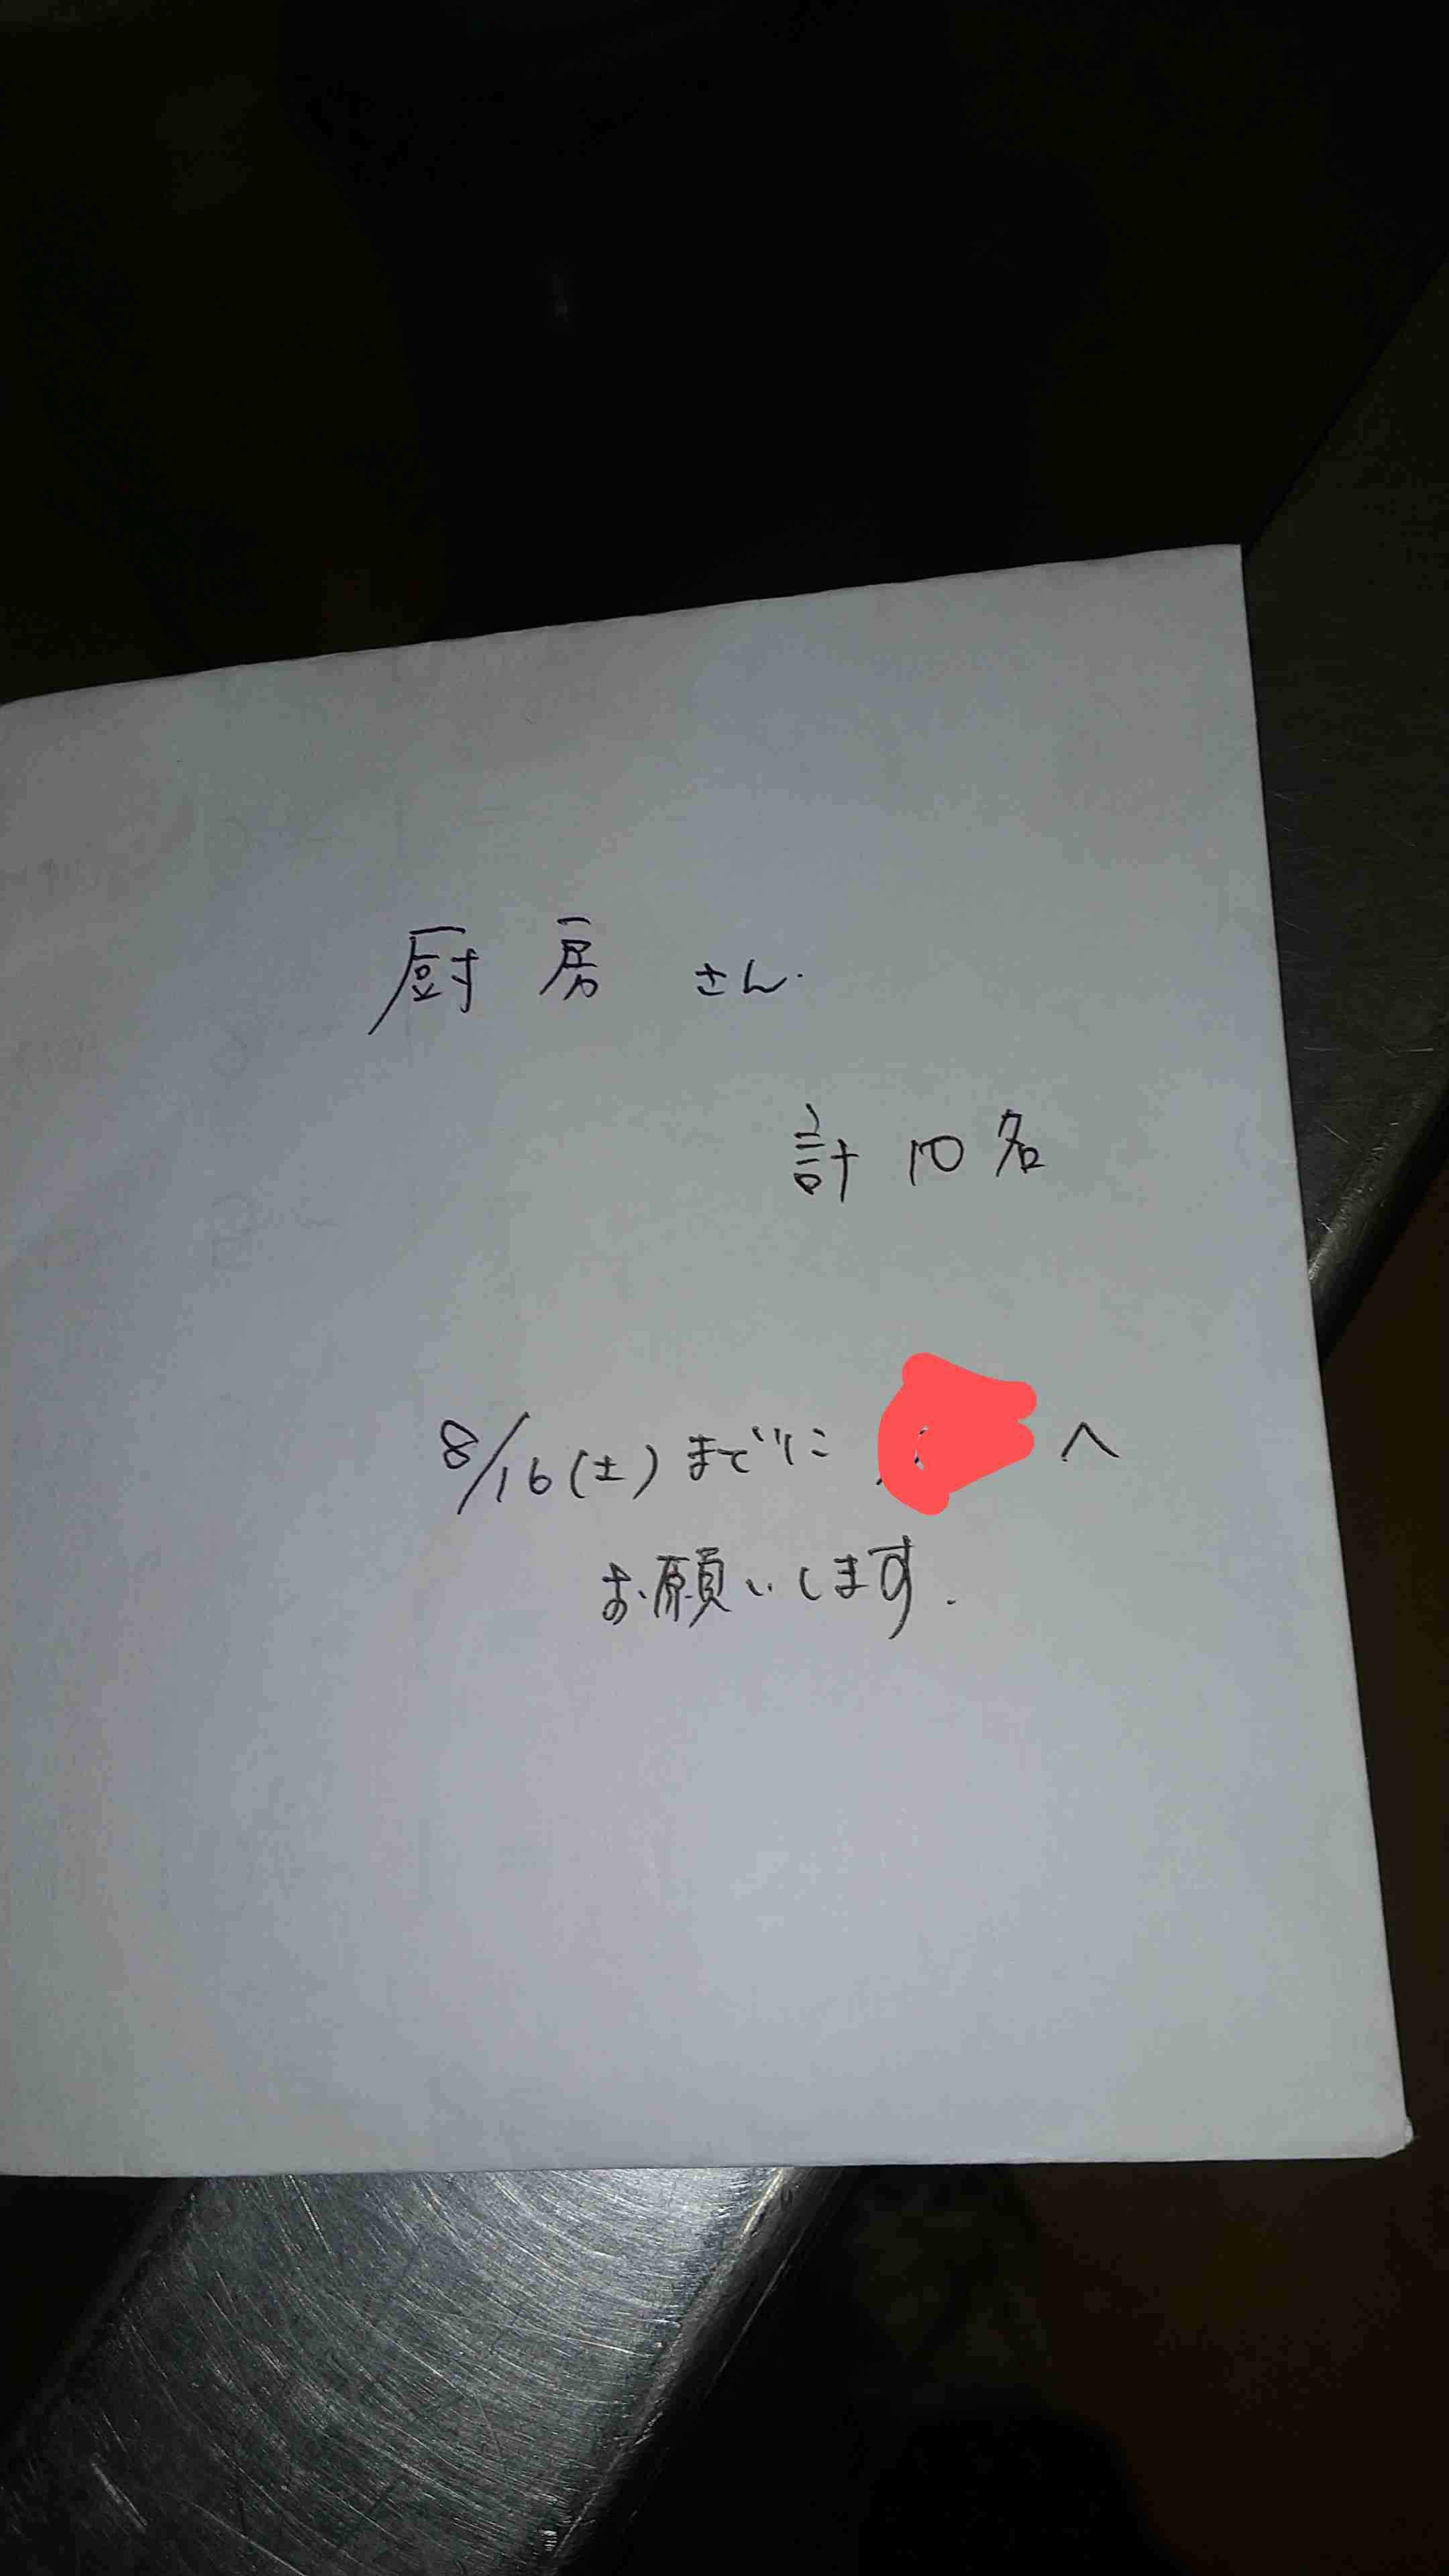 厨房 さん.
計 10 名
8/16(土)までに へ
お願いします.